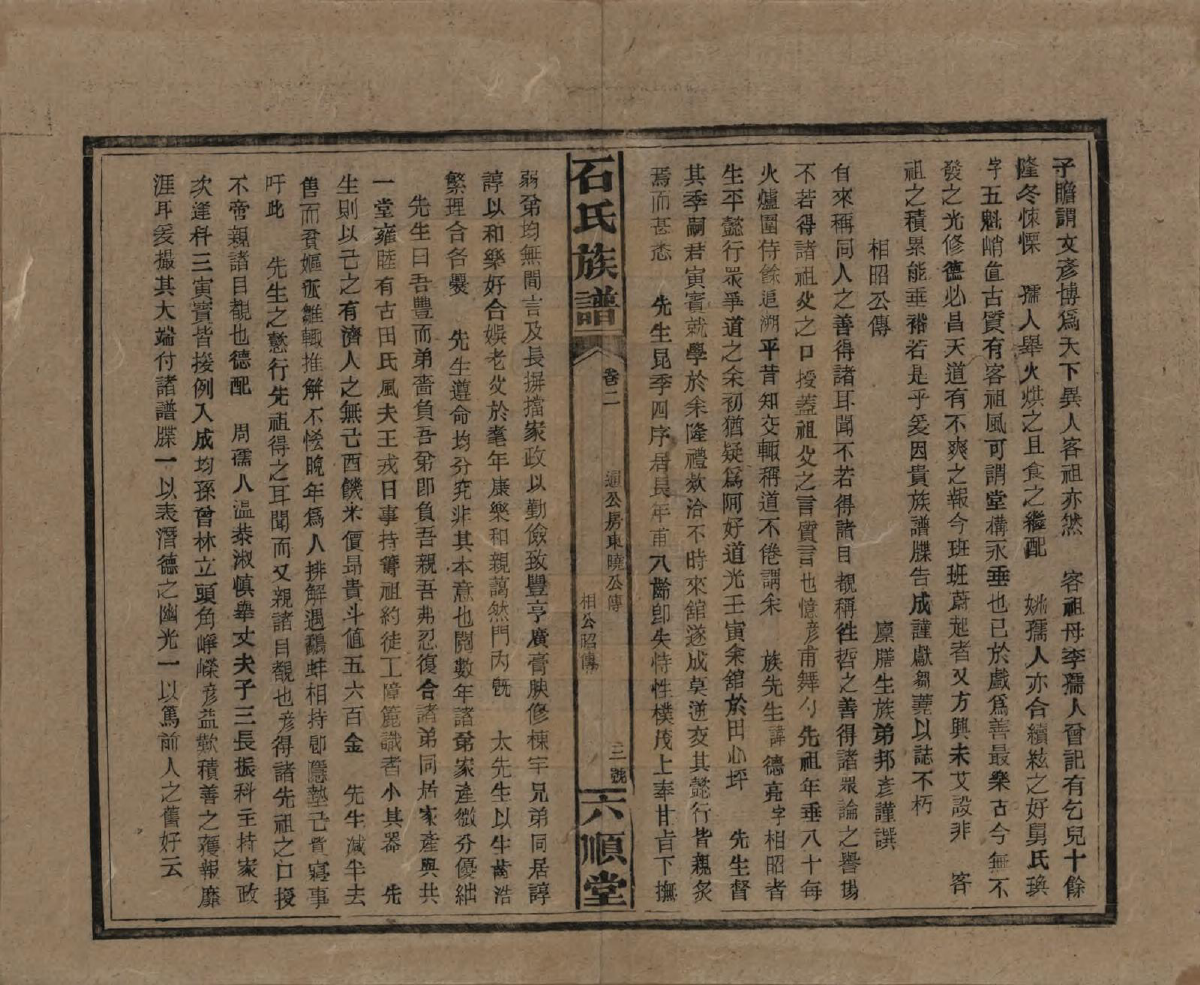 子瞻謂文彥博爲天下異人客祖亦然　客祖母李孺人曾記有乞兒十餘
隆冬悚慄　孺人舉火烘之且食之繼配　姚孺人亦合續絃之好舅氏瑍
字五魁峭值古質有客祖風可謂堂構永垂也已於戲爲善最樂古今無不
發之光修德必昌天道有不爽之報今班班蔚起者又方興未艾設非　客
祖之積累能垂裕若是乎爰因貴族譜牒告成謹獻芻蕘以誌不朽
相昭公傳　廪膳生族弟邦彥謹譔
自來稱同人之善得諸耳聞不若得諸目覩稱徃哲之善得諸眾論之譽揚
不若得諸祖父之口授蓋祖父之言質言也憶彥甫舞勺先祖年垂八十每
火爐圍侍餘追溯平昔知交輒稱道不倦謂余　族先生諱德亮字相昭者
生平懿行眾爭道之余初猶疑爲阿好道光壬寅余舘於田心坪　先生督
其季嗣君寅賓就學於余隆禮欵洽不時來舘遂成莫逆交其懿行皆親炙
焉而甚悉　先生昆季四序居長年甫八齡卽失恃性樸茂上奉甘旨下撫
石氏族譜　卷二　迥公房東曉公傳　相公昭傳　三號　六順堂
弱弟均無間言及長摒擋家政以勤儉致豐亨廣膏腴修棟宇兄弟同居諄
諄以和樂好合娛老父於耄年康樂和親藹然門內旣　太先生以生齒浩
繁理合各爨　先生遵命均分究非其本意也閱數年諸弟家產微分優絀
先生曰吾豐而弟嗇負吾弟卽負吾親吾弗忍復合諸弟同居家產與共
一堂雍睦有古田氏風夫王戎日事持籌祖約徒工障簏識者小其器　先
生則以己之有濟人之無己酉饑米價昻貴斗值五六百金　先生減半去
售而貧嫗孤雛輒推解不恡晚年爲人排解遇鷸蚌相持卽隱墊己貲寢事
吁此　先生之懿行先祖得之耳聞而又親諸目覩也彥得諸先祖之口授
不啻親諸目覩也德配　周孺人温恭淑慎舉丈夫子三長振科主持家政
次逢科三寅賓皆援例入成均孫曾林立頭角崢嶸彥益歎積善之獲報靡
涯耳爰撮其大端付諸譜牒一以表潛德之幽光一以篤前人之舊好云